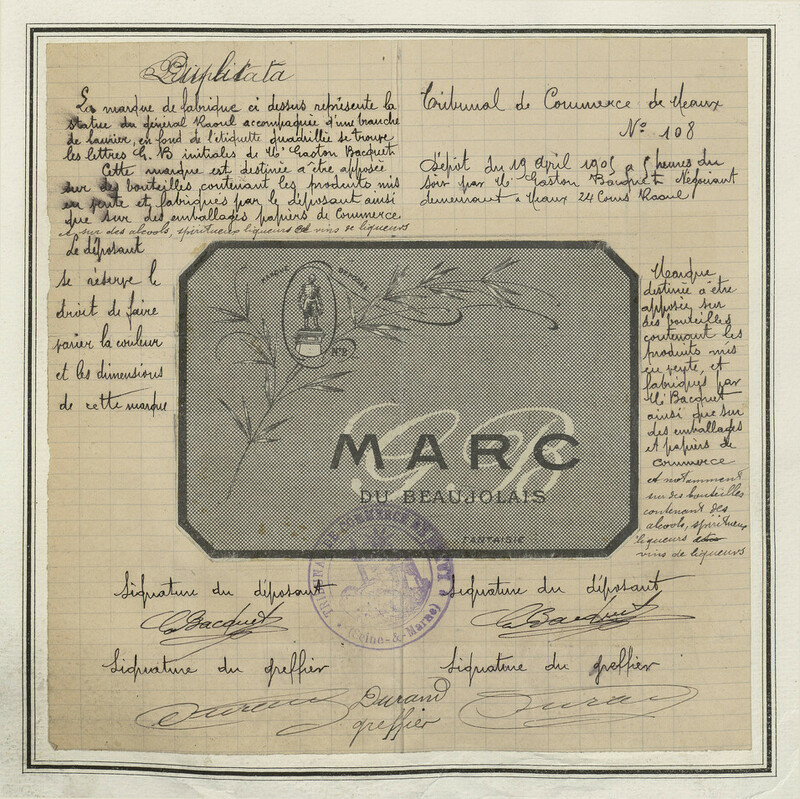 Duplicata
La marque de fabrique ci dessus représente la
statue du général Raoul accompagnée d'une branche
de laurier, en fond de l'étiquette quadrillée se trouve
les lettres G. B initiales de Mr Gaston Bacquet
Cette marque est destinée a être apposée
sur des bouteilles contenant les produits mis
en vente et fabriqués par le déposant ainsi
que sur des emballages papiers de Commerce
et sur des alcools, spiritueux liqueurs et vins de liqueurs
Le déposant
se réserve le
droit de faire
varier la couleur
et les dimensions
de cette marque
Tribunal de Commerce de Meaux
No 108
Dépôt du 19 April 190 a 5 heures du
soir par Mr Gaston Bacquet Négociant
demeurant a Meaux 24 Cours Raoul
MARQUE DÉPOSÉE
No 2
G.B
MARC
DU BEAUJOLAIS
FANTAISIE
Marque
destinée a être
apposée sur
des bouteilles
contenant les
produits mis
en vente, et
fabriqués par
Mr Bacquet
ainsi que sur
des emballages
et papiers de
Commerce
et notamment
sur des bouteilles
contenant des
alcools, spiritueux
liqueurs
vins de liqueurs
TRIBUNAL DE COMMERCE DE MEAUX
(Seine-&-Marne)
Signature du déposant
G Bacquet
Signature du déposant
G Bacquet
Signature du greffier
Durand
Durand
greffier
Signature du greffier
Durand